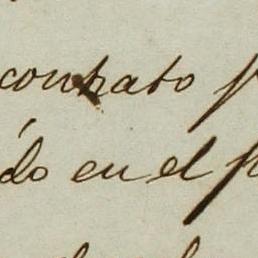 contrato
do en el